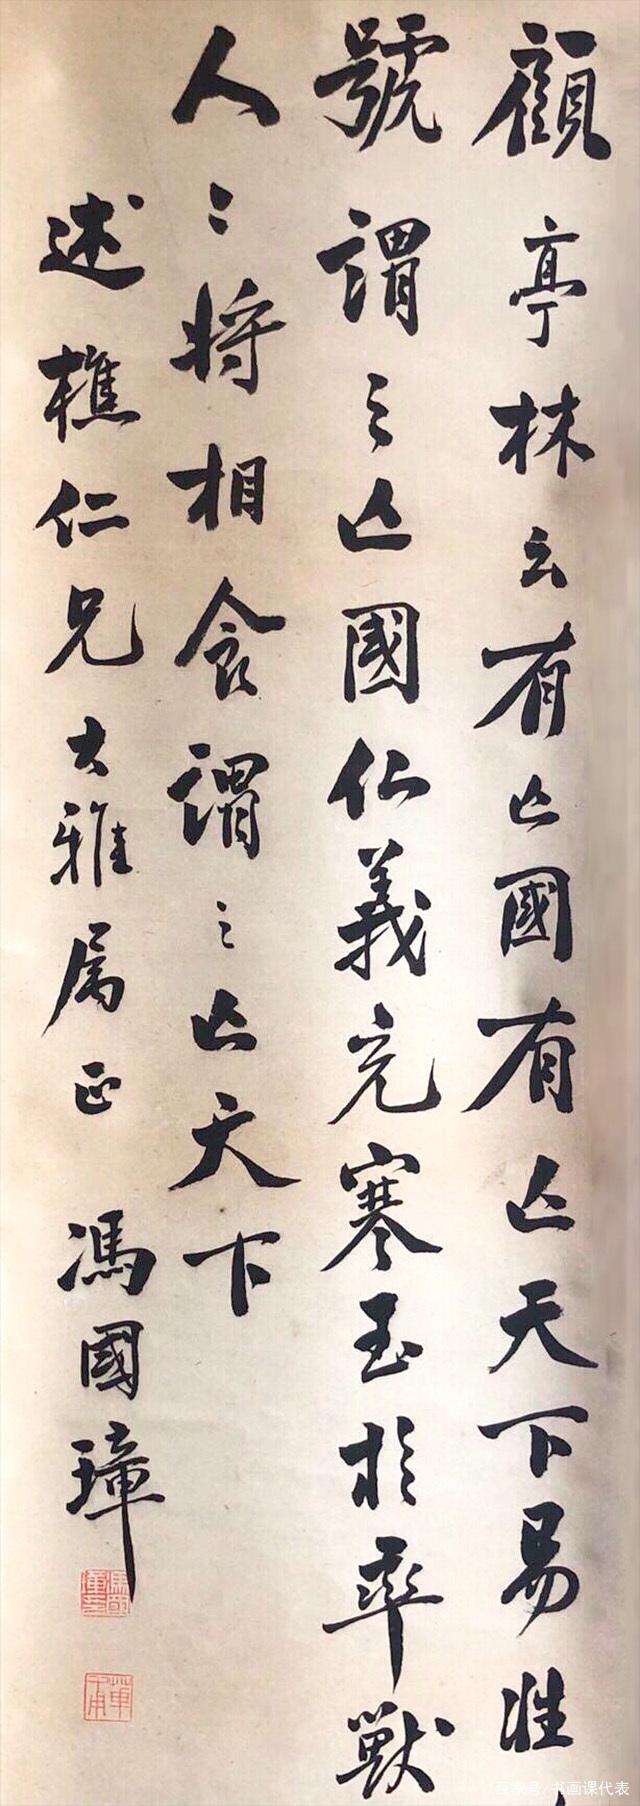 顧亭林云有亡國有亡天下易姓
號謂之亡國仁義充塞至於率獸
人〻將相食謂之亡天下
述樵仁兄大雅属正 馮國璋
百家号/书画课代表